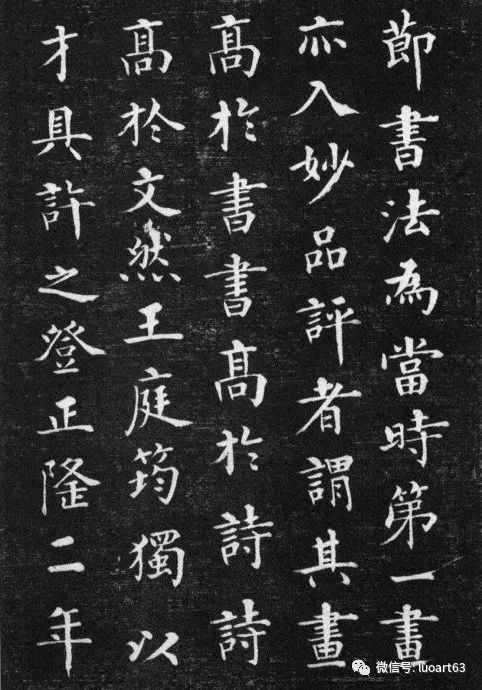 節書法為當時第一畫
亦入妙品評者謂其畫
高於書書高於詩詩
高於文然王庭筠獨以
才具許之登正隆二年
微信号: luoart63